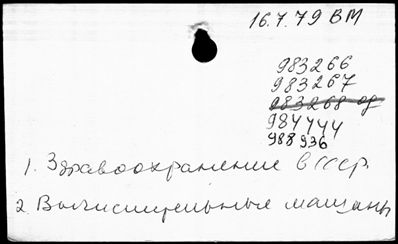 16.7.79 ВМ
983266
983267
983268 од
984444
988936
1. Здравоохранение в СССР.
2. Вычислительные машины